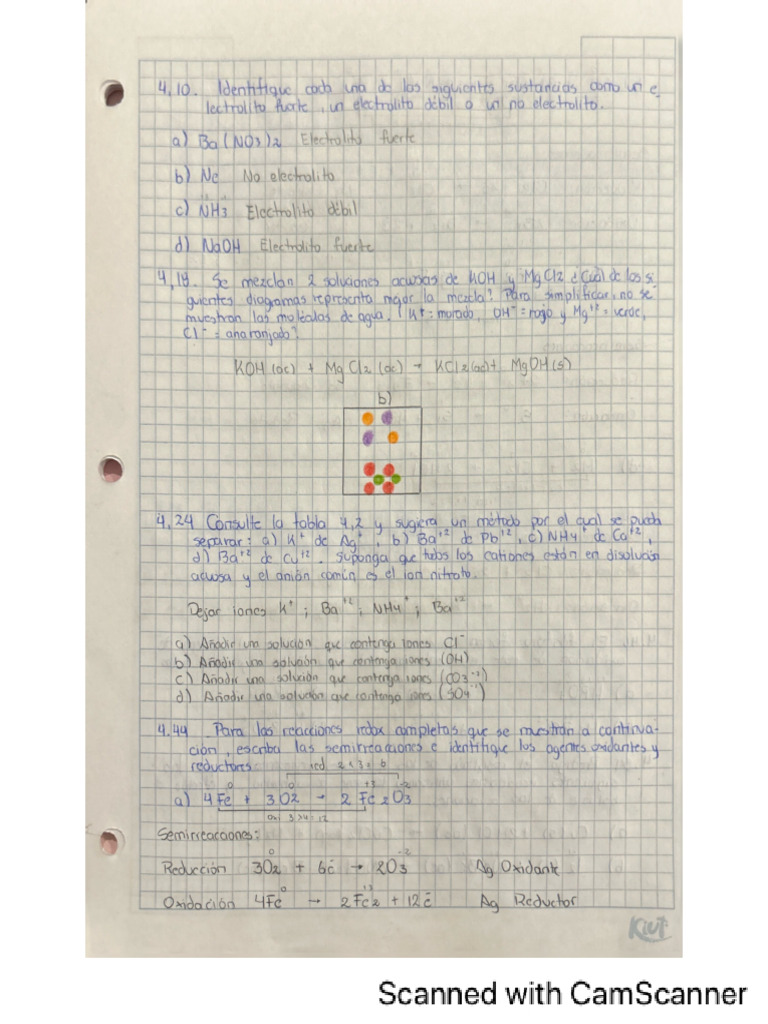 4,10. Identifique cada una de las siguientes sustancias como un e
lectrolito fuerte, un electrolito débil o un no electrolito.
a) Ba(NO3)2 Electrolito fuerte
b) Ne No electrolito
c) NH3 Electrolito débil
d) NaOH Electrolito fuerte
4,18. Se mezclan 2 soluciones acuosas de KOH y MgCl2 ¿Cuál de los si
guientes diagramas representa mejor la mezcla? Para simplificar, no se
muestran las moléculas de agua. (K+ = morado, OH- = rojo y Mg+2 = verde,
Cl- = anaranjado?
KOH (ac) + MgCl2 (ac) → KCl2(ac)+ MgOH(s)
b)
4,24 Consulte la tabla 4,2 y sugiera un método por el cual se pueda
separar: a) K+ de Ag+, b) Ba+2 de Pb+2, c) NH4+ de Ca+2,
d) Ba+2 de Cu+2. Suponga que todos los cationes están en disolución
acuosa y el anión común es el ion nitrato.
Dejar iones K+; Ba+2; NH4+; Ba+2
a) Añadir una solución que contenga iones Cl-
b) Añadir una solución que contenga iones (OH)
c) Añadir una solución que contenga iones (CO3--)
d) Añadir una solución que contenga iones (SO4--)
4.44 Para las reacciones redox completas que se muestran a continua-
ción, escriba las semirreacciones e identifique los agentes oxidantes y
reductores
red 2x3=6
0 0 +3 -2
a) 4Fe + 3O2 → 2Fe2O3
oxi 3x4=12
Semirreacciones:
0 -2
Reducción 3O2 + 6e → 2O3 Ag Oxidante
0 +3
Oxidación 4Fe → 2Fe2 + 12e Ag Reductor
Kiut
Scanned with CamScanner